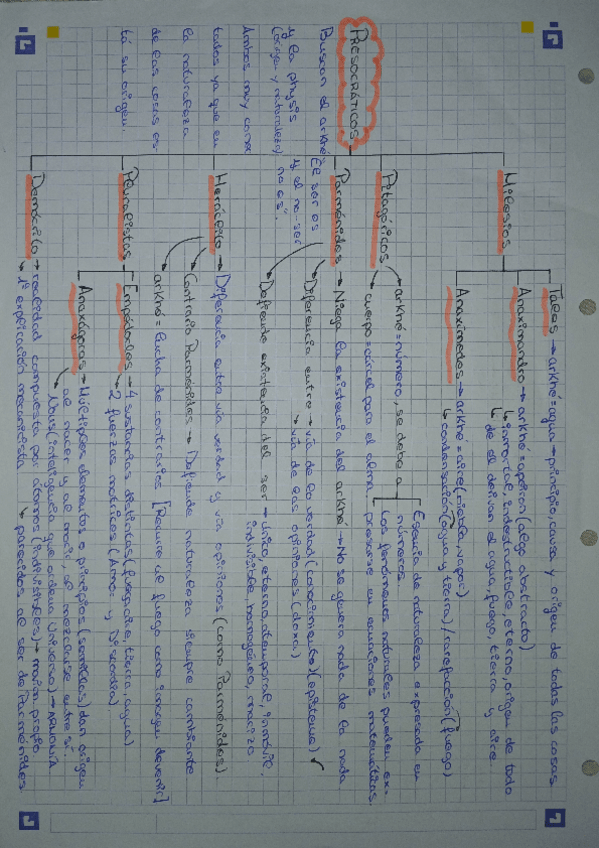 PRESOCRÁTICOS
Buscan el arkhé
y la physis
(origen y naturaleza)
Ambos muy conec
tados ya que en
la naturaleza
de las cosas es
tá su origen.
Milesios
Tales → arkhé=agua → principio, causa y origen de todas las cosas
Anaximandro → arkhé=apeiron (algo abstracto)
inmortal, indestructible, eterno, origen de todo
de el derivan el agua, fuego, tierra y aire.
Anaxímedes → arkhé=aire (niebla, vapor)
condensación (agua y tierra)/rarefacción (fuego)
Pitagóricos
arkhé=número, se debe a
Esencia de naturaleza expresada en
números.
Los fenómenos naturales pueden ex-
presarse en ecuaciones matemáticas.
cuerpo=cárcel para el alma
Parménides → Niega la existencia del arkhé → No se genera nada de la nada
"El ser es
y el no-ser
no es".
Diferencia entre → vía de la verdad (conocimiento) (episteme)
vía de las opiniones (doxa)
Defiende existencia del ser → único, eterno, atemporal, inmóvil,
indivisible, homogéneo, macizo
Heráclito → Diferencia entre vía verdad y vía opiniones (como Parménides).
Contraria Parménides → Defiende naturaleza siempre cambiante
arkhé = lucha de contrarios [Recurre al fuego como imagen devenir]
Pluralistas
Empédocles → 4 sustancias distintas (fuego, aire, tierra, agua)
2 fuerzas motrices (Amor y Discordia)
Anaxágoras → Múltiples elementos o principios (semillas) dan origen
al nacer y al morir, al mezclarse entre sí.
Nous (inteligencia que ordena Universo) →
Demócrito → realidad compuesta por átomos (indivisibles) → movim. propio
1ª explicación mecanicista
parecidos al ser de Parménides